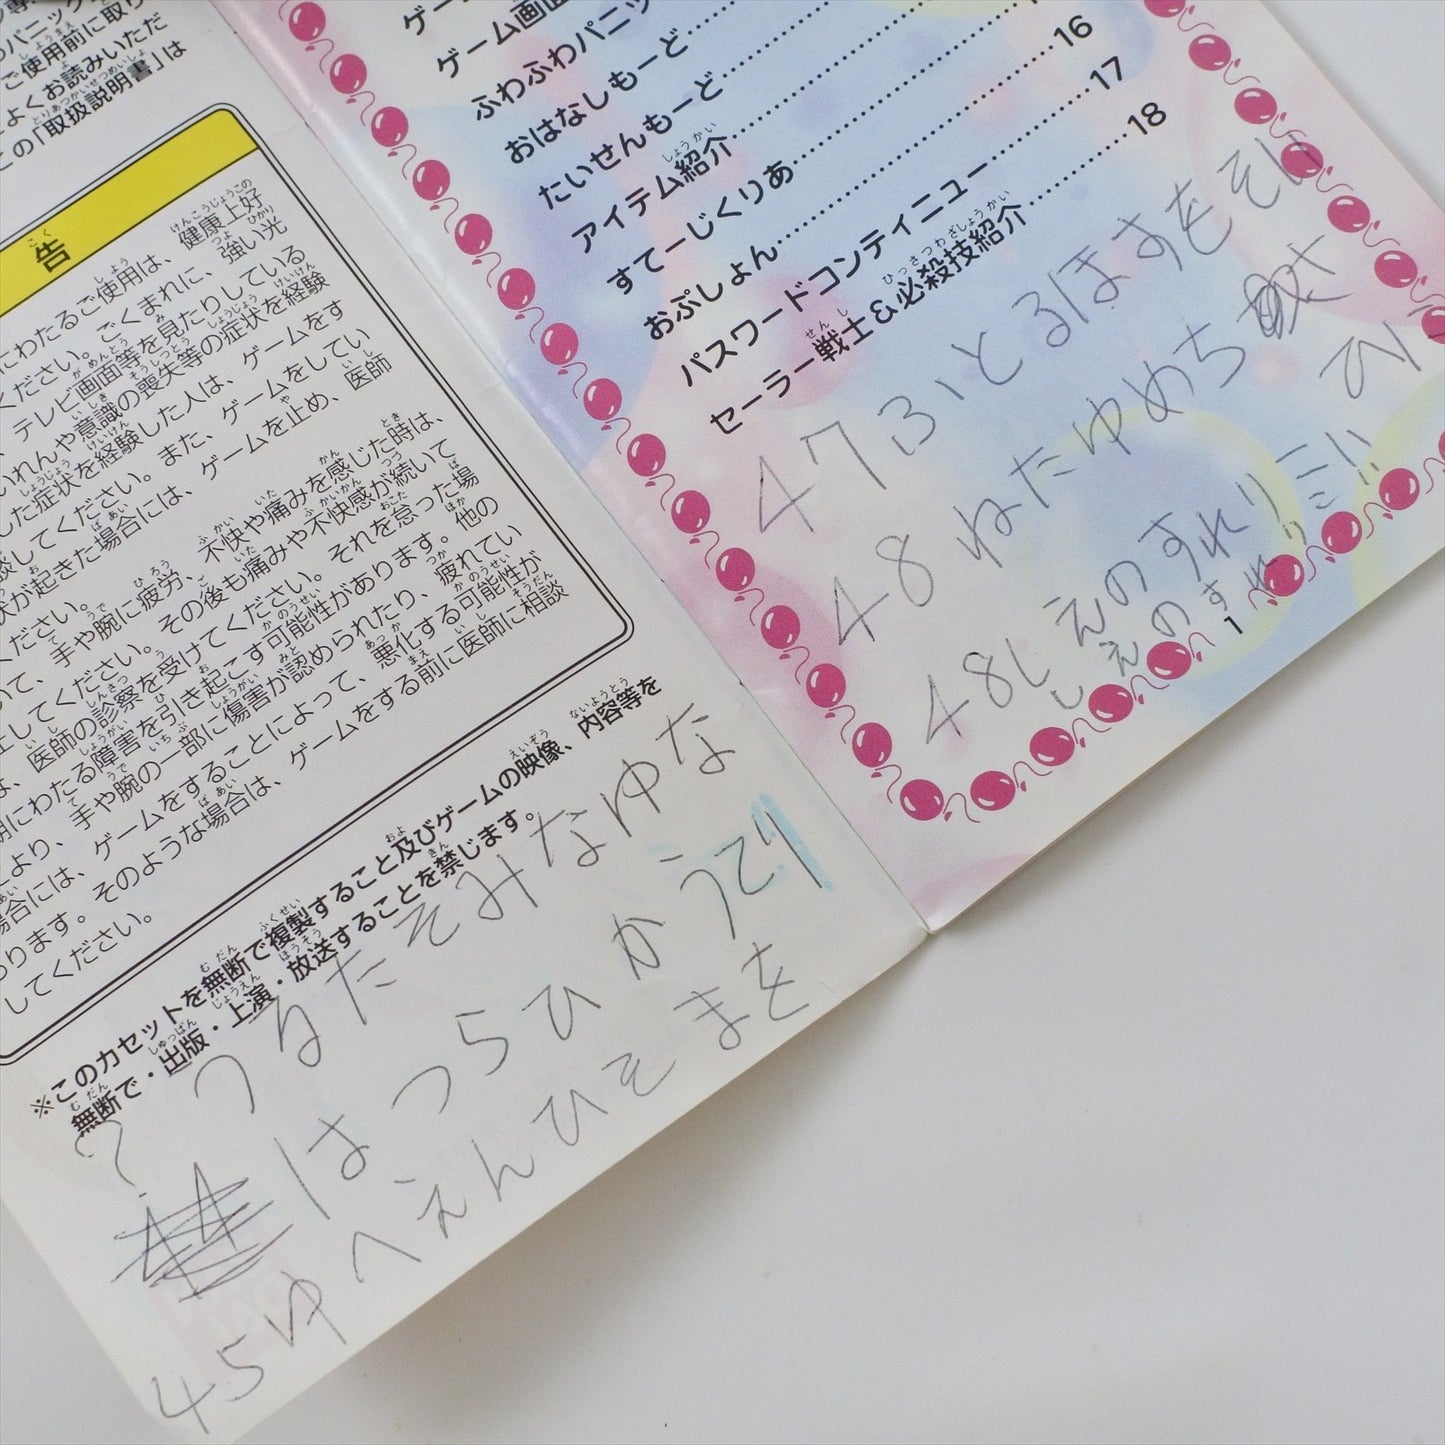 ご使用前に取り
よくお読みいただ
この「取扱説明書」は
告
にわたるご使用は、健康上好
ください。ごくまれに、強い光
テレビ画面等を見たりしている
いれんや意識の喪失等の症状を経験
した症状を経験した人は、ゲームをす
談してください。また、ゲームをしてい
状が起きた場合には、ゲームを止め、医師
ください。
手や腕に疲労、不快や痛みを感じた時は、
いて、その後も痛みや不快感が続いて
は、医師の診察を受けてください。それを怠った場
期にわたる障害を引き起こす可能性があります。
手や腕の一部に傷害が認められたり、他の
より、ゲームをすることによって、疲れてい
悪化する可能性が
あります。そのような場合は、ゲームをする前に医師に相談
してください。
※このカセットを無断で複製すること及びゲームの映像、内容等を
無断で・出版・上演・放送することを禁じます。
つるたそみなゆな
?
はつらひかうてり
45ゆへえんひそまを
ゲーム画面
ふわふわパニッ
おはなしもーど
たいせんもーど
アイテム紹介
すてーじくりあ
おぷしょん 16
パスワードコンティニュー 17
セーラー戦士&必殺技紹介 18
47ふいとるほすをそ
48ねたゆめち
48しえのすれりこ
しえのすれり
1